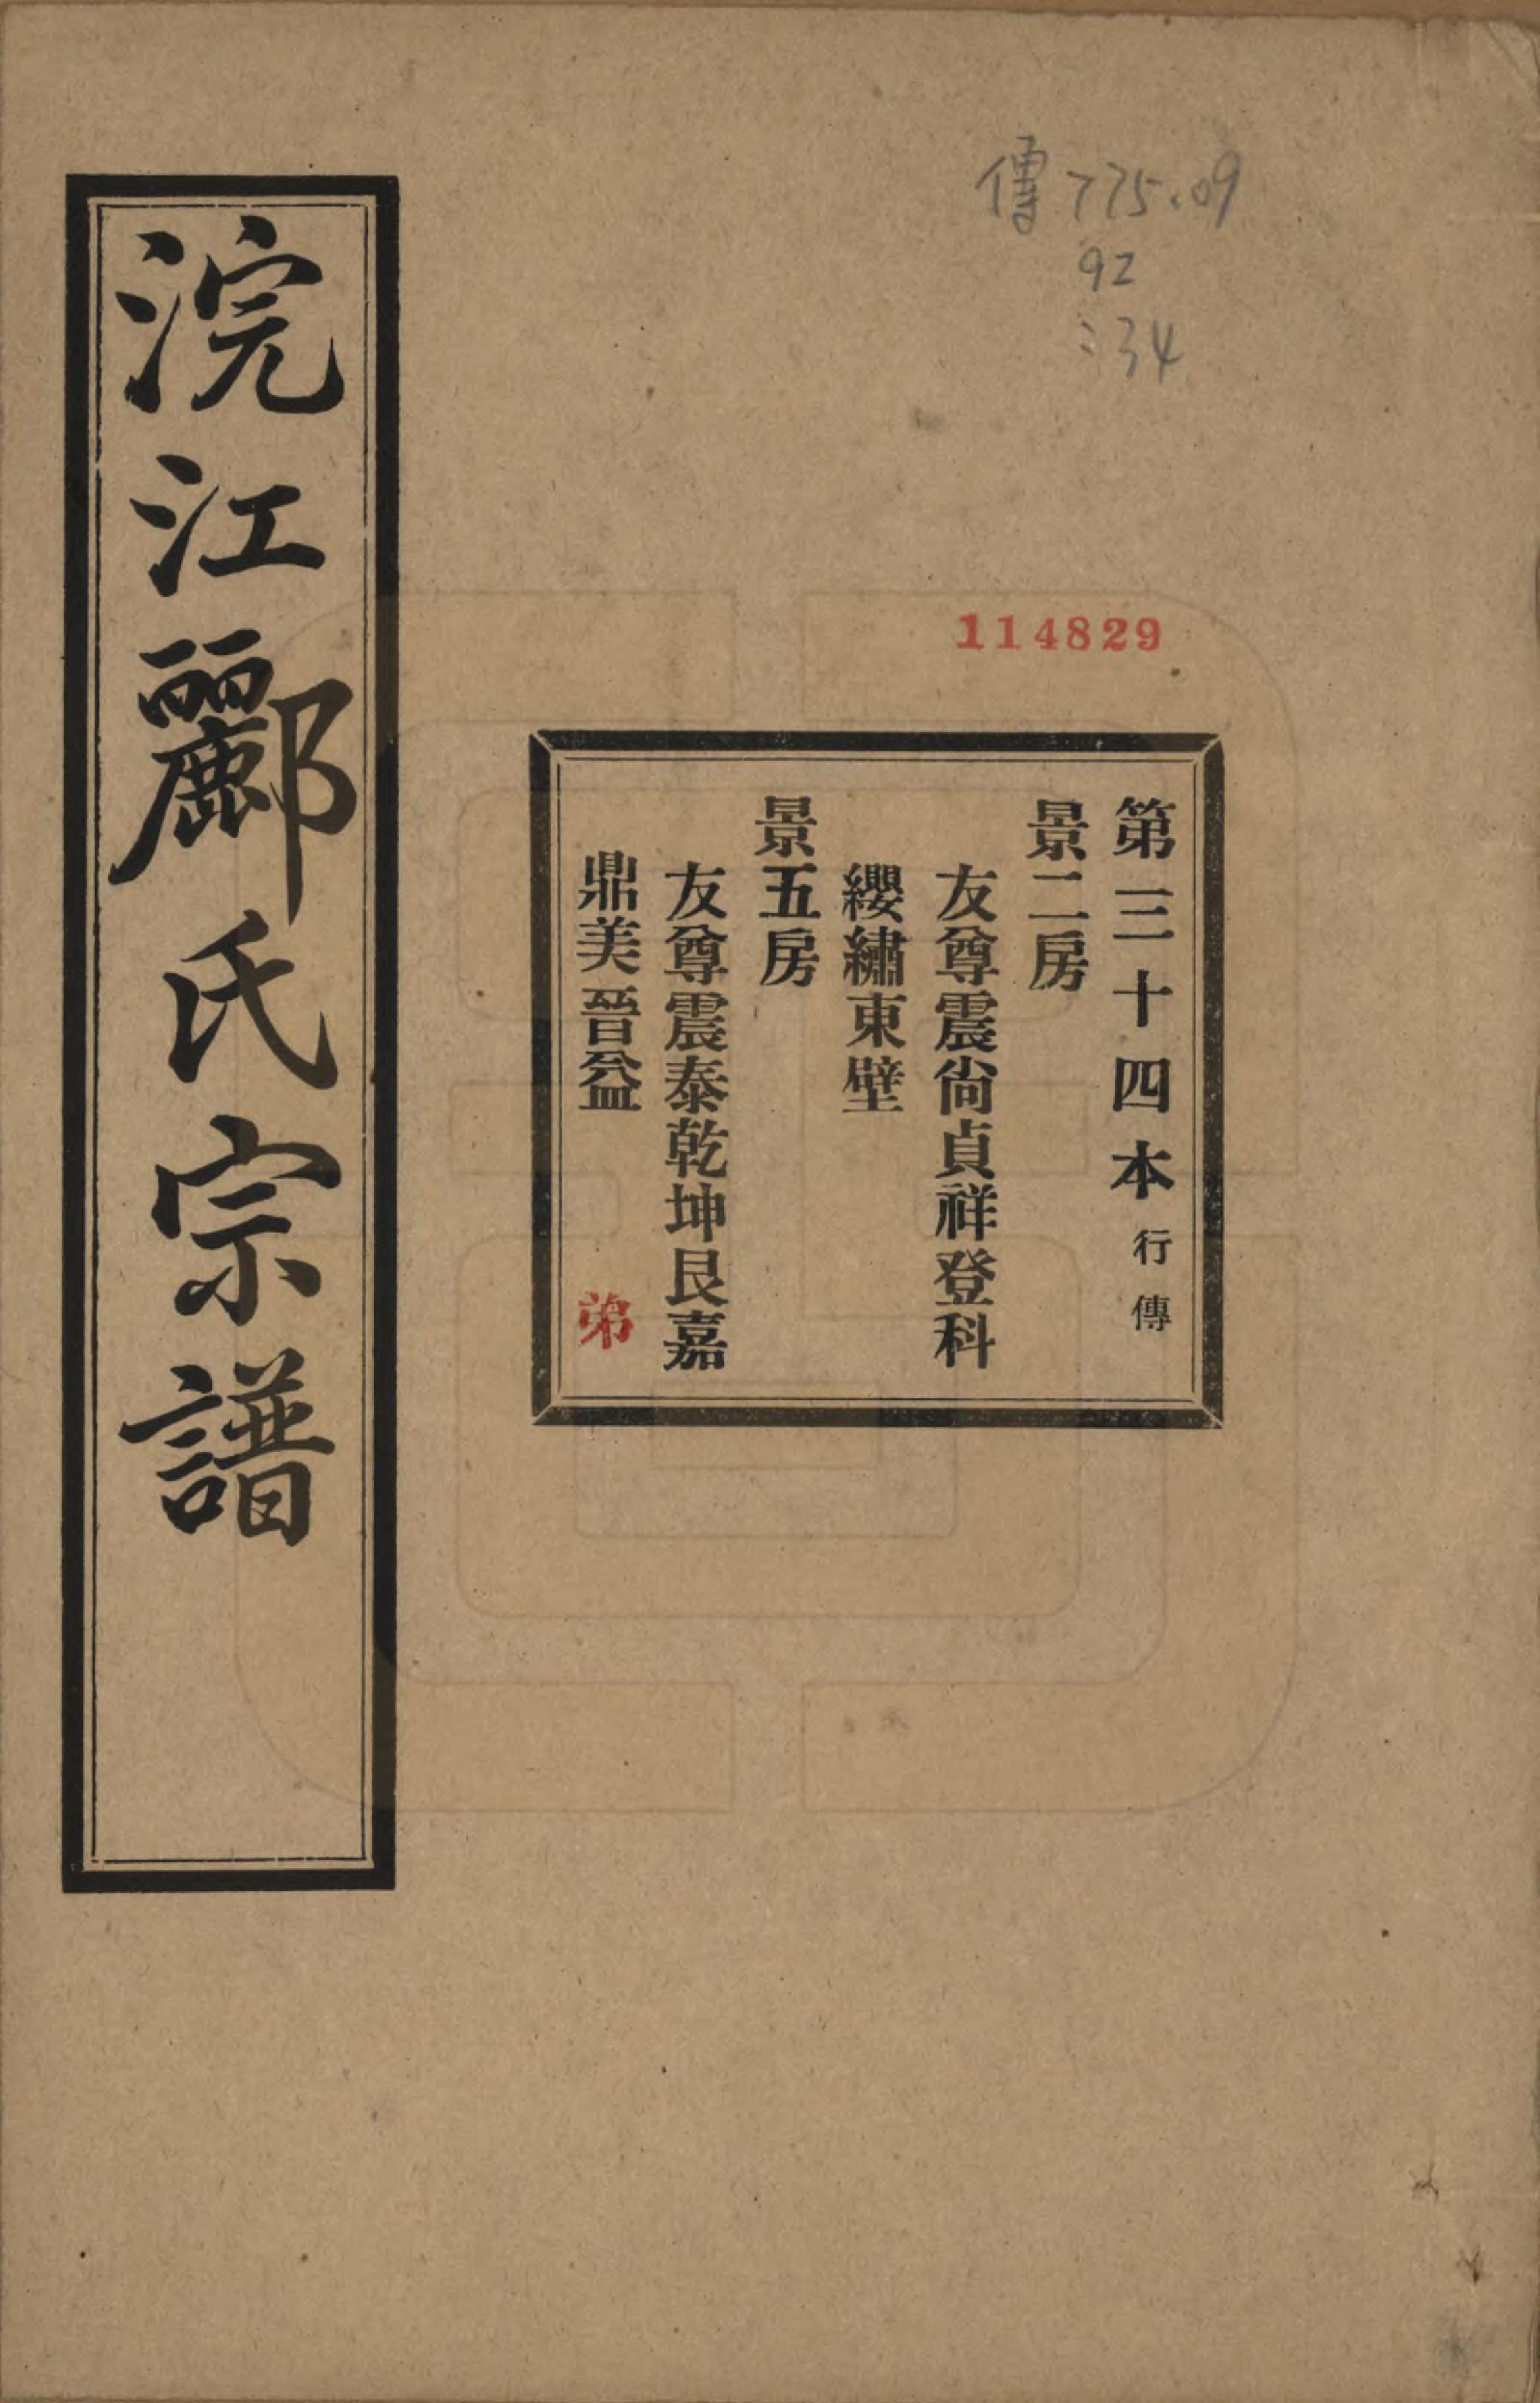 傳 775.09
92
:34
114829
第三十四本 行傳
景二房
友尊震尙貞祥登科
纓繡東壁
景五房
友尊震泰乾坤艮嘉
鼎美晉益
弟
浣江酈氏宗譜